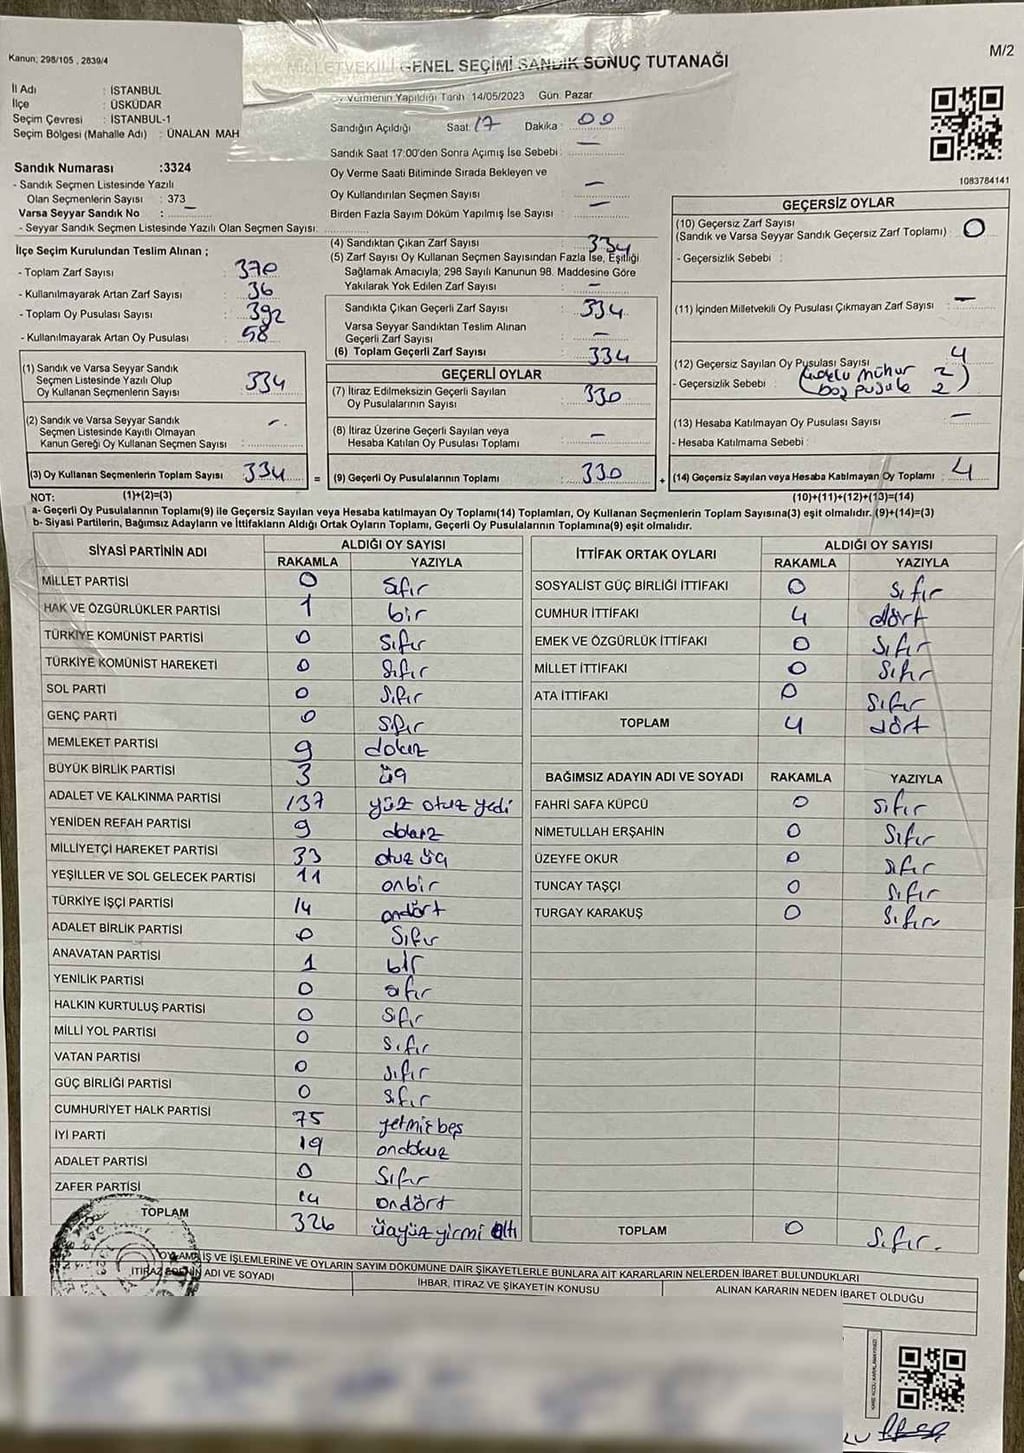 Kanun; 298/105 , 2839/4
MİLLETVEKİLİ GENEL SEÇİMİ SANDIK SONUÇ TUTANAĞI
M/2
İl Adı : İSTANBUL
İlçe : ÜSKÜDAR
Seçim Çevresi : İSTANBUL-1
Seçim Bölgesi (Mahalle Adı) : ÜNALAN MAH
Oy Vermenin Yapıldığı Tarih 14/05/2023 Gün. Pazar
Sandığın Açıldığı Saat: 17 Dakika : 00
Sandık Saat 17:00'den Sonra Açımış İse Sebebi : —
Oy Verme Saati Bitiminde Sırada Bekleyen ve
Oy Kullandırılan Seçmen Sayısı —
Birden Fazla Sayım Döküm Yapılmış İse Sayısı —
1083784141
Sandık Numarası :3324
- Sandık Seçmen Listesinde Yazılı
Olan Seçmenlerin Sayısı : 373
Varsa Seyyar Sandık No : —
- Seyyar Sandık Seçmen Listesinde Yazılı Olan Seçmen Sayısı:
İlçe Seçim Kurulundan Teslim Alınan ;
- Toplam Zarf Sayısı : 370
- Kullanılmayarak Artan Zarf Sayısı : 36
- Toplam Oy Pusulası Sayısı : 392
- Kullanılmayarak Artan Oy Pusulası : 58
(1) Sandık ve Varsa Seyyar Sandık
Seçmen Listesinde Yazılı Olup
Oy Kullanan Seçmenlerin Sayısı : 334
(2) Sandık ve Varsa Seyyar Sandık
Seçmen Listesinde Kayıtlı Olmayan
Kanun Gereği Oy Kullanan Seçmen Sayısı : —
(3) Oy Kullanan Seçmenlerin Toplam Sayısı : 334 =
(4) Sandıktan Çıkan Zarf Sayısı : 334
(5) Zarf Sayısı Oy Kullanan Seçmen Sayısından Fazla İse, Eşitliği
Sağlamak Amacıyla; 298 Sayılı Kanunun 98. Maddesine Göre
Yakılarak Yok Edilen Zarf Sayısı : —
Sandıkta Çıkan Geçerli Zarf Sayısı : 334
Varsa Seyyar Sandıktan Teslim Alınan
Geçerli Zarf Sayısı : —
(6) Toplam Geçerli Zarf Sayısı : 334
GEÇERLİ OYLAR
(7) İtiraz Edilmeksizin Geçerli Sayılan
Oy Pusulalarının Sayısı : 330
(8) İtiraz Üzerine Geçerli Sayılan veya
Hesaba Katılan Oy Pusulası Toplamı : —
(9) Geçerli Oy Pusulalarının Toplamı : 330 +
GEÇERSİZ OYLAR
(10) Geçersiz Zarf Sayısı
(Sandık ve Varsa Seyyar Sandık Geçersiz Zarf Toplamı) : 0
- Geçersizlik Sebebi :
(11) İçinden Milletvekili Oy Pusulası Çıkmayan Zarf Sayısı : —
(12) Geçersiz Sayılan Oy Pusulası Sayısı : 4
- Geçersizlik Sebebi : ( mühür 2 )
boş pusula 2
(13) Hesaba Katılmayan Oy Pusulası Sayısı : —
- Hesaba Katılmama Sebebi :
(14) Geçersiz Sayılan veya Hesaba Katılmayan Oy Toplamı : 4
NOT: (1)+(2)=(3)
(10)+(11)+(12)+(13)=(14)
a- Geçerli Oy Pusulalarının Toplamı(9) ile Geçersiz Sayılan veya Hesaba katılmayan Oy Toplamı(14) Toplamları, Oy Kullanan Seçmenlerin Toplam Sayısına(3) eşit olmalıdır. (9)+(14)=(3)
b- Siyasi Partilerin, Bağımsız Adayların ve İttifakların Aldığı Ortak Oyların Toplamı, Geçerli Oy Pusulalarının Toplamına(9) eşit olmalıdır.
SİYASİ PARTİNİN ADI ALDIĞI OY SAYISI
RAKAMLA YAZIYLA
MİLLET PARTİSİ 0 sıfır
HAK VE ÖZGÜRLÜKLER PARTİSİ 1 bir
TÜRKİYE KOMÜNİST PARTİSİ 0 sıfır
TÜRKİYE KOMÜNİST HAREKETİ 0 sıfır
SOL PARTİ 0 sıfır
GENÇ PARTİ 0 sıfır
MEMLEKET PARTİSİ 9 dokuz
BÜYÜK BİRLİK PARTİSİ 3 üç
ADALET VE KALKINMA PARTİSİ 137 yüz otuz yedi
YENİDEN REFAH PARTİSİ 9 dokuz
MİLLİYETÇİ HAREKET PARTİSİ 33 otuz üç
YEŞİLLER VE SOL GELECEK PARTİSİ 11 onbir
TÜRKİYE İŞÇİ PARTİSİ 14 ondört
ADALET BİRLİK PARTİSİ 0 sıfır
ANAVATAN PARTİSİ 1 bir
YENİLİK PARTİSİ 0 sıfır
HALKIN KURTULUŞ PARTİSİ 0 sıfır
MİLLİ YOL PARTİSİ 0 sıfır
VATAN PARTİSİ 0 sıfır
GÜÇ BİRLİĞİ PARTİSİ 0 sıfır
CUMHURİYET HALK PARTİSİ 75 yetmişbeş
İYİ PARTİ 19 ondokuz
ADALET PARTİSİ 0 sıfır
ZAFER PARTİSİ 14 ondört
TOPLAM 326 üçyüzyirmi altı
İTTİFAK ORTAK OYLARI ALDIĞI OY SAYISI
RAKAMLA YAZIYLA
SOSYALİST GÜÇ BİRLİĞİ İTTİFAKI 0 sıfır
CUMHUR İTTİFAKI 4 dört
EMEK VE ÖZGÜRLÜK İTTİFAKI 0 sıfır
MİLLET İTTİFAKI 0 sıfır
ATA İTTİFAKI 0 sıfır
TOPLAM 4 dört
BAĞIMSIZ ADAYIN ADI VE SOYADI RAKAMLA YAZIYLA
FAHRİ SAFA KÜPCÜ 0 sıfır
NİMETULLAH ERŞAHİN 0 sıfır
ÜZEYFE OKUR 0 sıfır
TUNCAY TAŞÇI 0 sıfır
TURGAY KARAKUŞ 0 sıfır
TOPLAM 0 sıfır.
OYLAMA İŞ VE İŞLEMLERİNE VE OYLARIN SAYIM DÖKÜMÜNE DAİR ŞİKAYETLERLE BUNLARA AİT KARARLARIN NELERDEN İBARET BULUNDUKLARI
İTİRAZ EDENİN ADI VE SOYADI İHBAR, İTİRAZ VE ŞİKAYETİN KONUSU ALINAN KARARIN NEDEN İBARET OLDUĞU